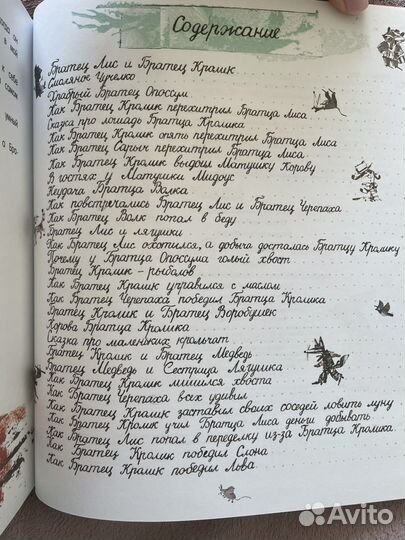 Содержание
Братец Лис и Братец Кролик
Смоляное Чучелко
Храбрый Братец Опоссум
Как Братец Кролик перехитрил Братца Лиса
Сказка про лошадь Братца Кролика
Как Братец Кролик опять перехитрил Братца Лиса
Как Братец Сарыч перехитрил Братца Лиса
Как Братец Кролик выдоил Матушку Корову
В гостях у Матушки Мидоус
Неудача Братца Волка
Как повстречались Братец Лис и Братец Черепаха
Как Братец Волк попал в беду
Братец Лис и лягушки
Как Братец Лис охотился, а добыча досталась Братцу Кролику
Почему у Братца Опоссума голый хвост
Братец Кролик - рыболов
Как Братец Кролик управился с маслом
Как Братец Черепаха победил Братца Кролика
Братец Кролик и Братец Воробушек
Корова Братца Кролика
Сказка про маленьких крольчат
Братец Кролик и Братец Медведь
Братец Медведь и Сестрица Лягушка
Как Братец Кролик лишился хвоста
Как Братец Черепаха всех удивил
Как Братец Кролик заставил своих соседей ловить луну
Как Братец Кролик учил Братца Лиса деньги добывать
Как Братец Лис попал в переделку из-за Братца Кролика
Как Братец Кролик победил Слона
Как Братец Кролик победил Льва
Avito